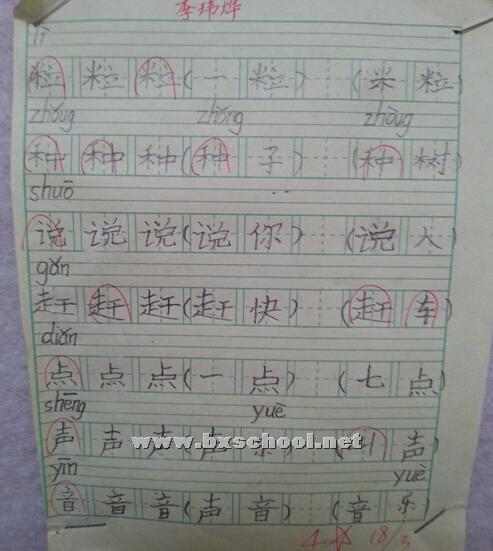 李玮烨
lì
粒 粒 粒(一 粒) (米 粒)
zhǒng zhǒng zhòng
种 种 种(种 子) (种 树)
shuō
说 说 说(说 你) (说 人)
gǎn
赶 赶 赶(赶 快) (赶 车)
diǎn
点 点 点(一 点) (七 点)
shēng yuè
声 声 声(声 乐) (叫 声)
www.bxschool.net
yīn yuè
音 音 音(声 音) (音 乐)
18/3